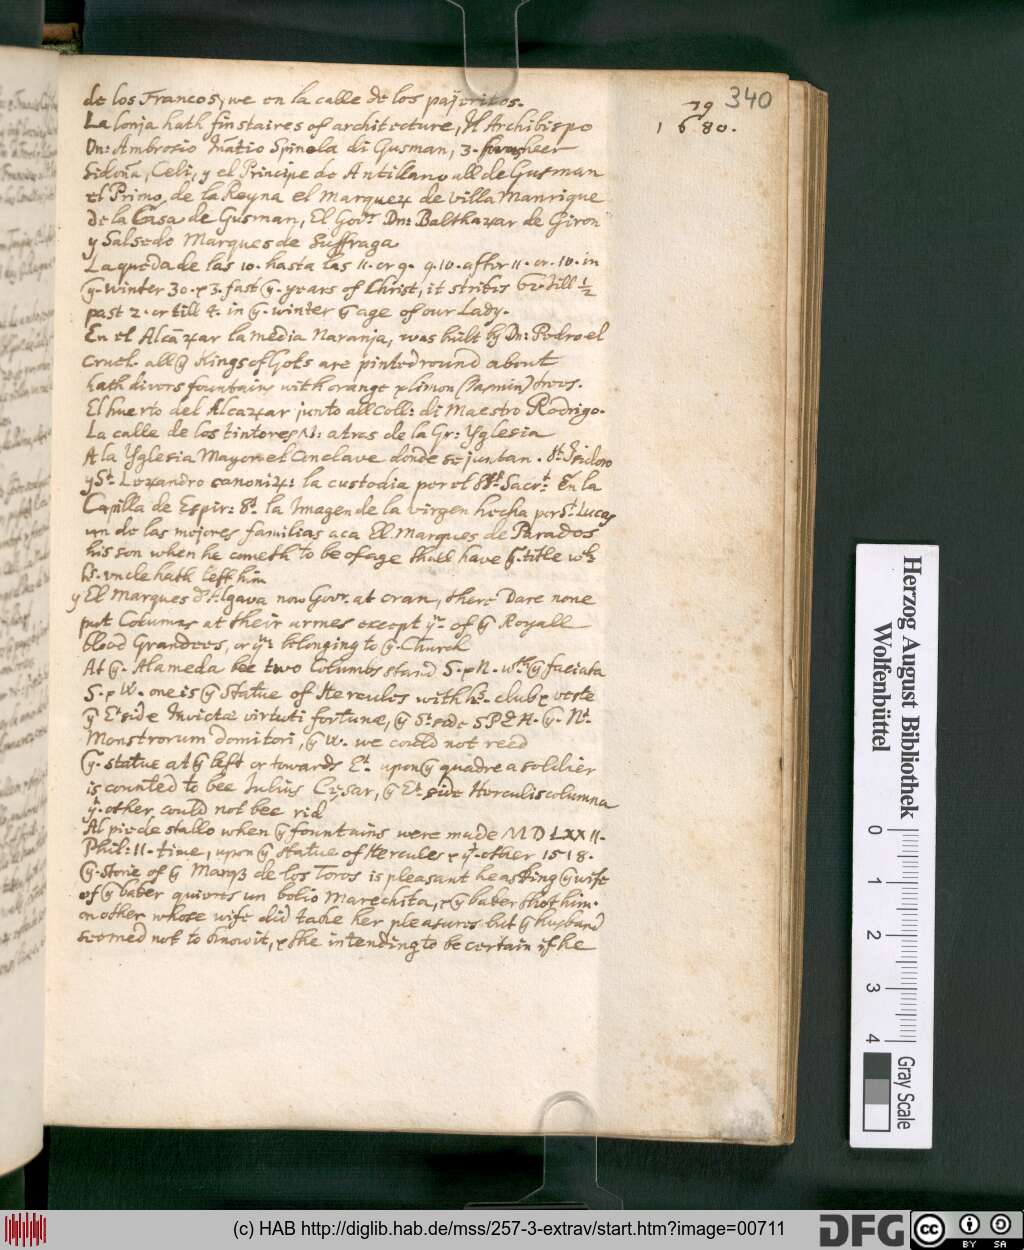 340
79
1680.
de los Francos, we en la calle de los pajeritos.
La lonja hath fin staires of architecture, Il Archibispo
Dn: Ambrosio Inatio Spinola di Gusman, 3. heer
Sidoña, Celi, y el Principe de Antillano all de Gusman
el Primo, de la Reyna el Marquez de Villa Manrique
De la Casa de Gusman, El Govr. Dn: Balthazar de Giron
y Salsedo Marques de Suffraga
La queda de las 10. hasta las 11. or 9. 9.10. after 11. or. 10. in
ye. winter 30. & 3. fast ye. years of Christ, it strikes till ½
past 2. or till 4. in ye. winter ye age of our Lady.
En el Alcāzar la media Naranja, was built by Dn: Pedro el
Cruel. all ye Kings of Gots are pinted round about
hath divers fountains with orange & limon (Jasmin) trees.
El huerto del Alcazar junto all Coll: di Maestro Rodrigo.
La calle de los tintores N: atras de la Gr: Yglesia
A la Yglesia Mayor el Conclave donde se juntan. St. Isidoro
y St. Lezandro canoniz: la custodia por el Sacrt: En la
Capilla de Espir: St. la Imagen de la virgen hecha por St. Lucas
un de las mejores familias aca El Marques de Parados
his son when he cometh to be of age shall have ye. title wch
hs. uncle hath left him
y El Marques d'Algava now Govr. at Oran, there Dare none
put Colums at their armes except ym. of ye Royall
blood Grandees, or ym: belonging to ye. Church
At ye. Alameda bee two Columbs stand S. & N. wth ye faciata
S. & W. one is ye Statue of Hercules with hs. club & veste
ye Et side Invictæ virtuti fortunæ, ye St side SPQH. ye. Nt.
Monstrorum domitori, ye W. we could not reed
ye. statue at ye left or towards Et. upon ye quadre a soldier
is counted to bee Julius Cesar, ye Et side Herculis columna
ye other could not bee rid
Al piedestallo when ye fountains were made MDLXXII.
Phil: 11. time, upon ye statue of Hercules & ye. other 1518.
ye. storie of ye Marqs de los Toros is pleasant he asking ye wife
of ye baker quieres un bolio Marechita, & ye baker shot him.
on other whose wife did take her pleasures but ye husband
seemed not to know it, & she intending to be certain if he
Herzog August Bibliothek
Wolfenbüttel
0 1 2 3 4
Gray Scale
(c) HAB http://diglib.hab.de/mss/257-3-extrav/start.htm?image=00711
DFG
cc BY SA